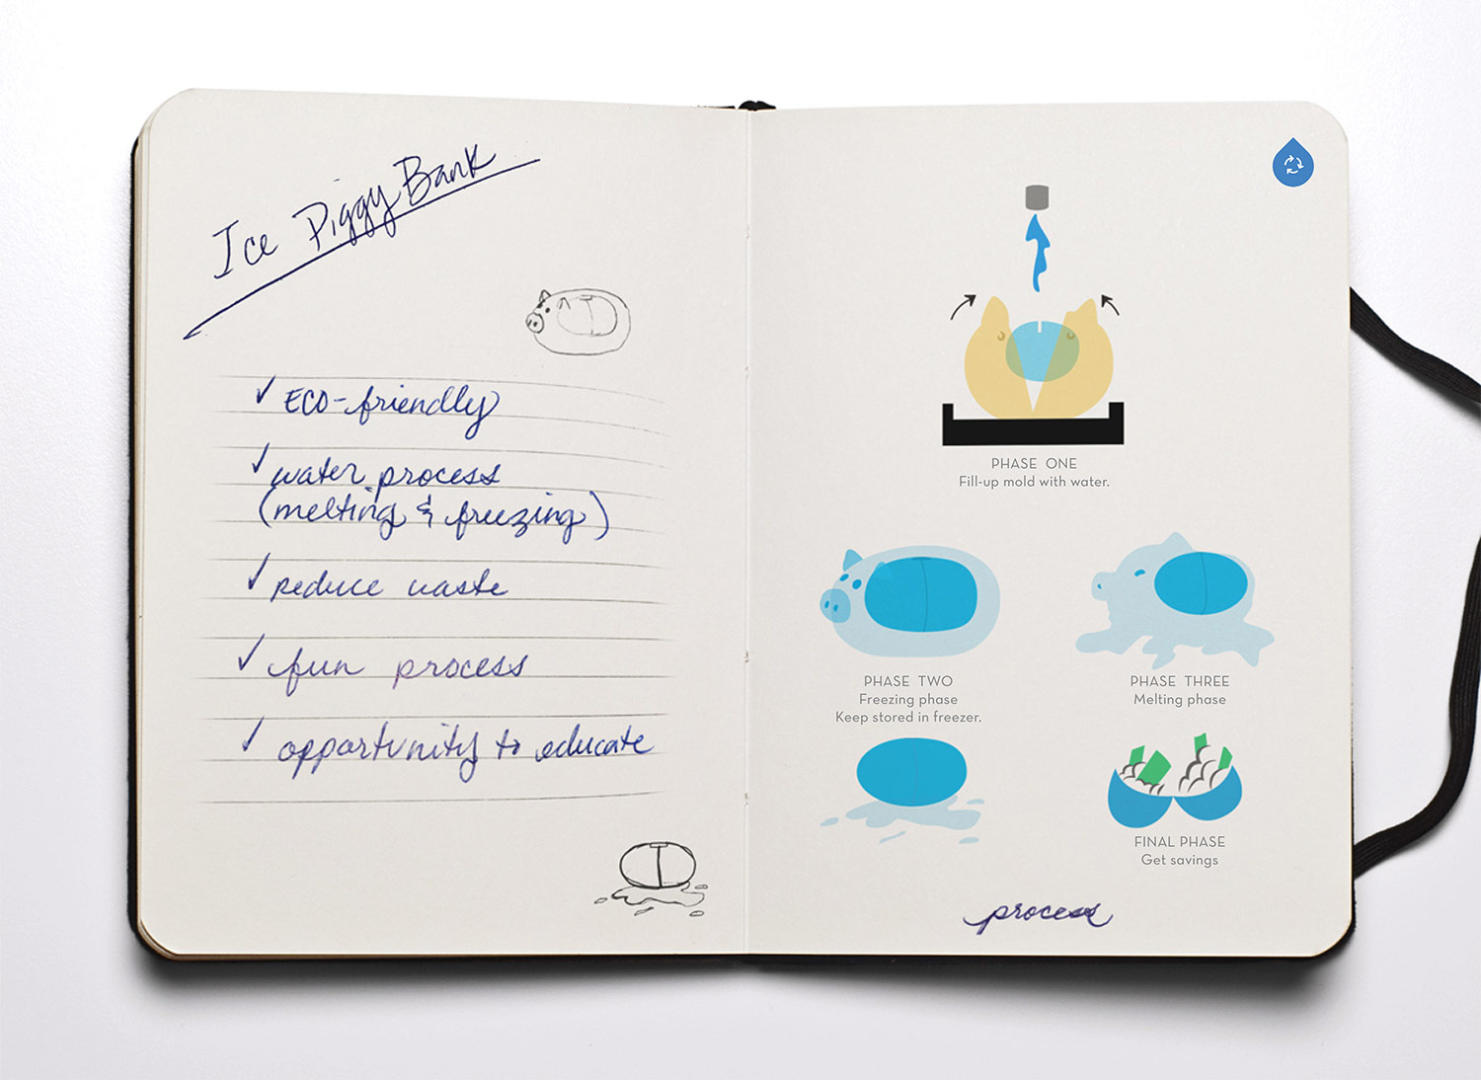 Ice Piggy Bank
✓ ECO-friendly
✓ water process
(melting & freezing)
✓ reduce waste
✓ fun process
✓ opportunity to educate
PHASE ONE
Fill-up mold with water.
PHASE TWO
Freezing phase
Keep stored in freezer.
PHASE THREE
Melting phase
FINAL PHASE
Get savings
process